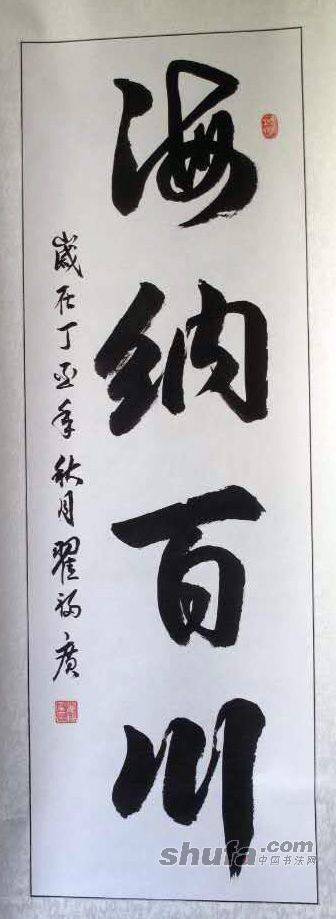 海纳百川
歲在丁酉年秋月翟福廣
shufa.com
中国书法网